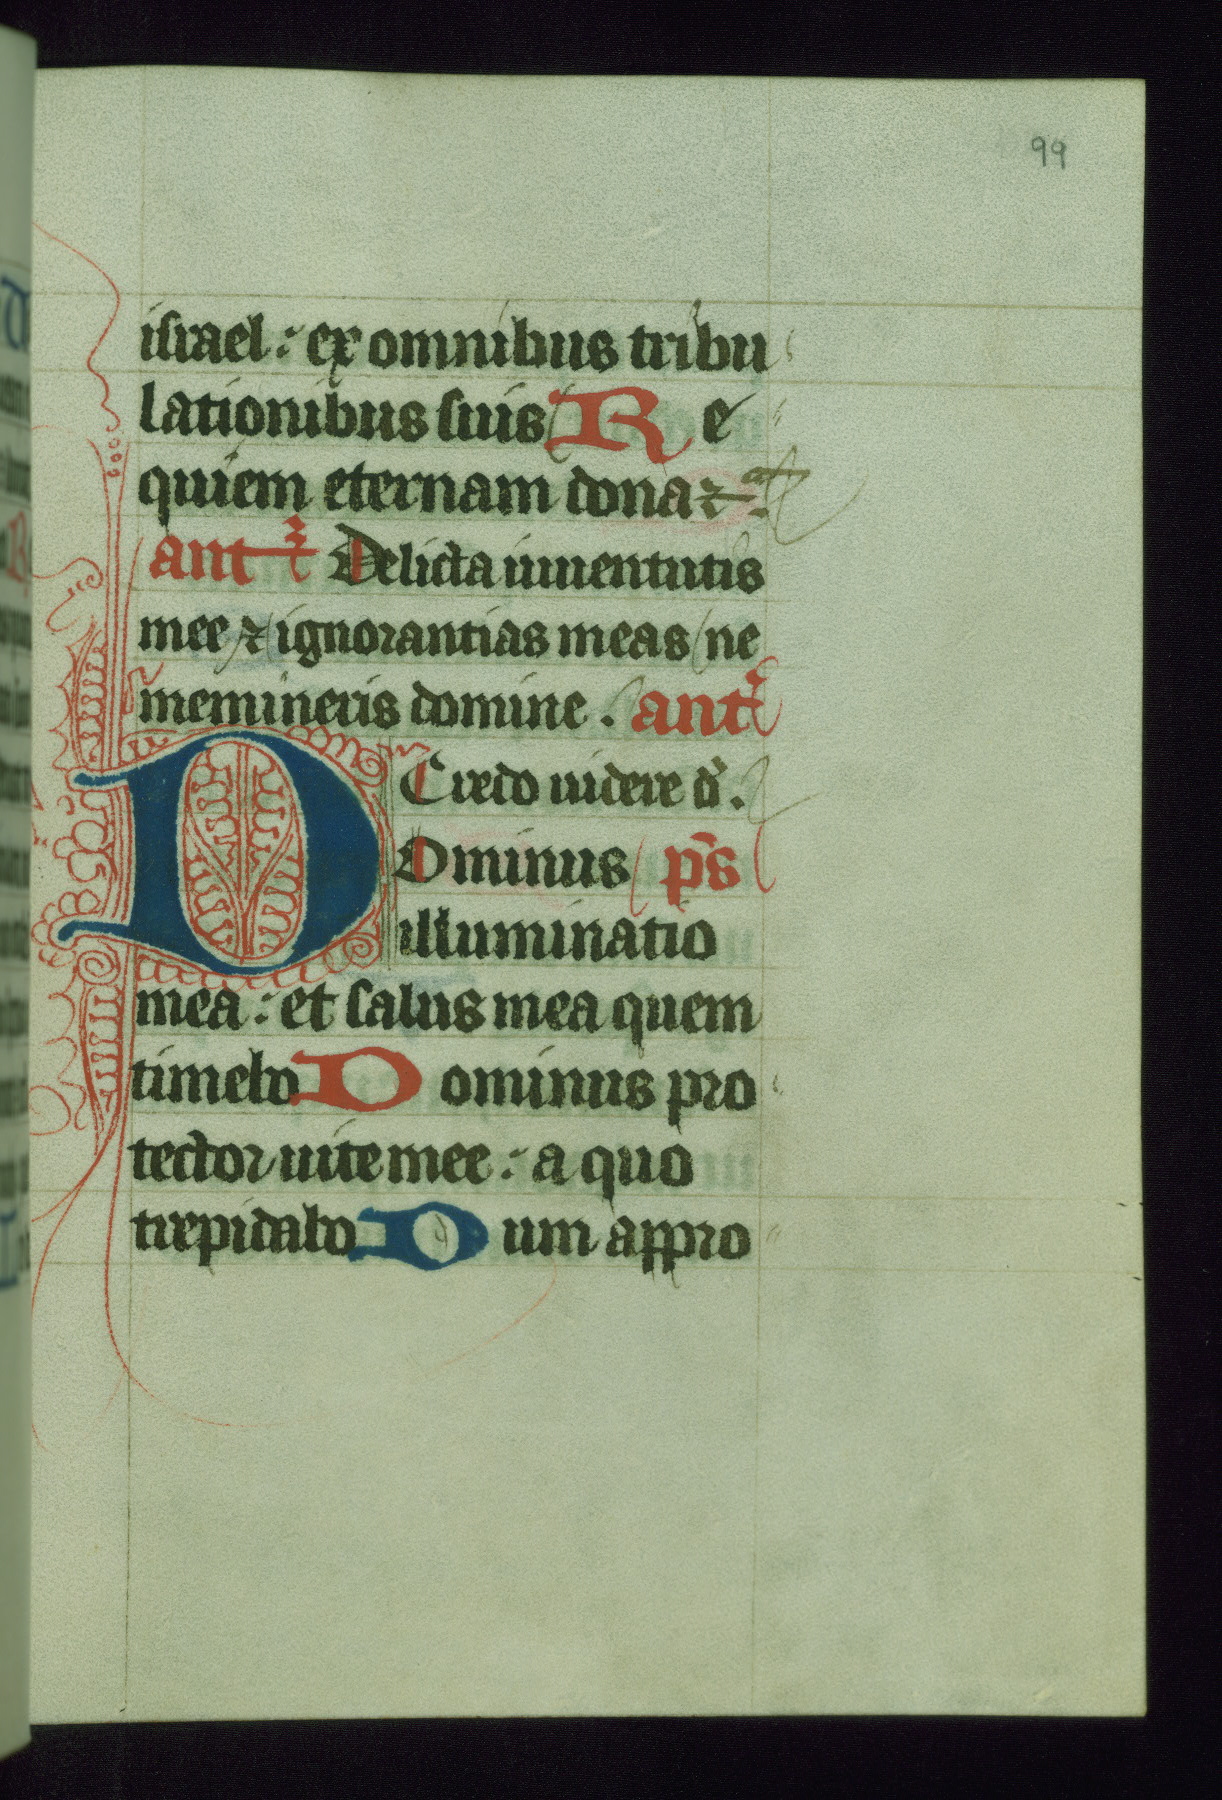 99
israel : ex omnibus tribu
lationibus suis Re
quiem eternam dona ⁊ .
ant Delicta iuuentutis
mee ⁊ ignorantias meas ne
memineris domine . ant
Credo uidere d .
Dominus ps
illuminatio
mea : et salus mea quem
timebo Dominus pro
tector uite mee : a quo
trepidabo Dum appro